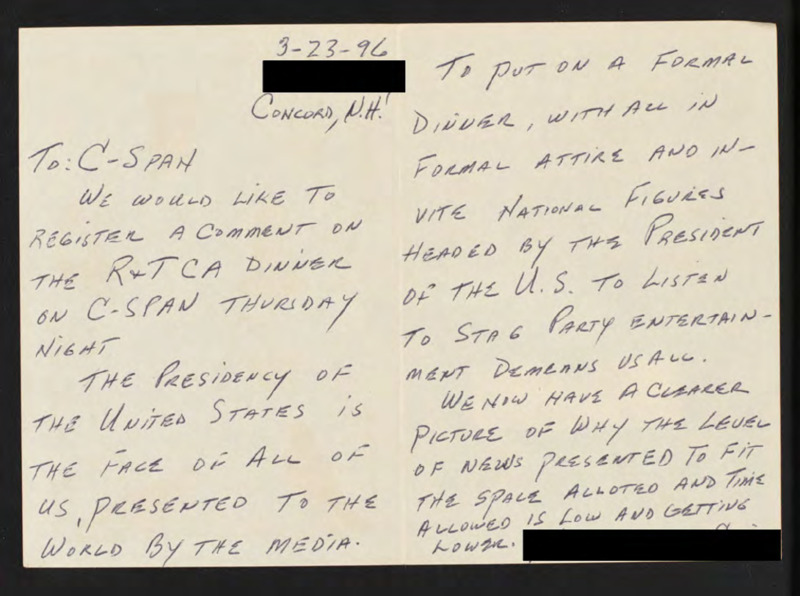 3-23-96
CONCORD, N.H.
TO: C-SPAN
WE WOULD LIKE TO
REGISTER A COMMENT ON
THE R&TCA DINNER
ON C-SPAN THURSDAY
NIGHT
THE PRESIDENCY OF
THE UNITED STATES IS
THE FACE OF ALL OF
US, PRESENTED TO THE
WORLD BY THE MEDIA.
TO PUT ON A FORMAL
DINNER, WITH ALL IN
FORMAL ATTIRE AND IN-
VITE NATIONAL FIGURES
HEADED BY THE PRESIDENT
OF THE U.S. TO LISTEN
TO STAG PARTY ENTERTAIN-
MENT DEMEANS US ALL.
WE NOW HAVE A CLEARER
PICTURE OF WHY THE LEVEL
OF NEWS PRESENTED TO FIT
THE SPACE ALLOTED AND TIME
ALLOWED IS LOW AND GETTING
LOWER.